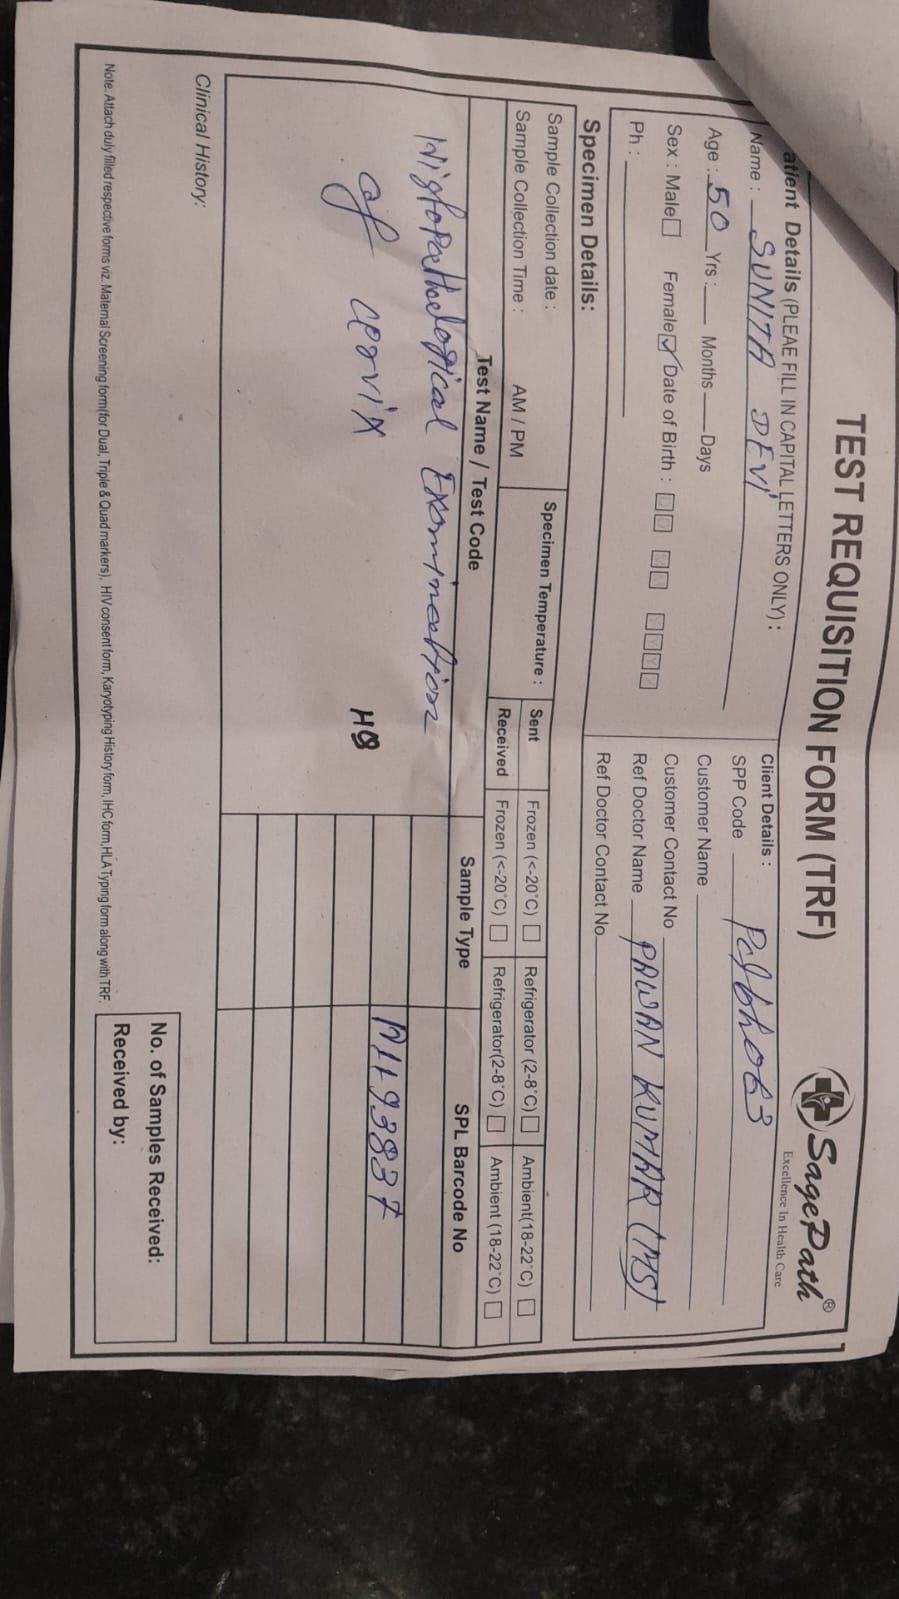 TEST REQUISITION FORM (TRF)
SagePath®
Excellence In Health Care
atient Details (PLEAE FILL IN CAPITAL LETTERS ONLY) :
Name : SUNITA DEVI
Age : 50 Yrs : Months Days
Sex : Male Female ☑ Date of Birth : DD MM YYYY
Ph :
Client Details :
SPP Code
Customer Name
Customer Contact No
Ref Doctor Name PAWAN KUMAR (MS)
Ref Doctor Contact No.
Specimen Details:
Sample Collection date :
Sample Collection Time : AM / PM
Specimen Temperature :
Sent Frozen (<-20°C) Refrigerator (2-8°C) Ambient(18-22°C)
Received Frozen (<-20°C) Refrigerator(2-8°C) Ambient (18-22°C)
Test Name / Test Code Sample Type SPL Barcode No
Histopathological Examination
of cervix
H9
Clinical History:
No. of Samples Received:
Received by:
Note. Attach duly filled respective forms viz. Maternal Screening form(for Dual, Triple & Quad markers), HIV consent form, Karyotyping History form, IHC form,HLA Typing form along with TRF.